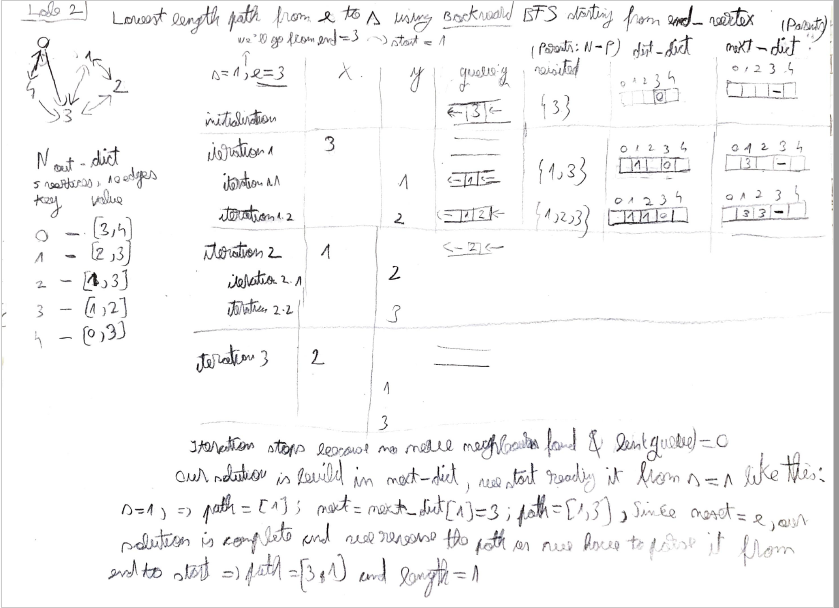 Lab 2
Lowest length path from e to s using Backward BFS starting from end_vertex (Parents)
we'll go from end=3 → start=1
s=1, e=3 x y queue q visited (Parents: N-P) dist-dict next-dict
0 1 2 3 4 0 1 2 3 4
initialization ←|3|← {3} 0 -
iteration 1 3
0 1 2 3 4 0 1 2 3 4
iteration 1.1 1 ←|1|← {1,3} 1 0 3 -
0 1 2 3 4 0 1 2 3 4
iteration 1.2 2 ←|1|2|← {1,2,3} 1 1 0 3 3 -
iteration 2 1 ←2|←
iteration 2.1 2
iteration 2.2 3
iteration 3 2
1
3
1
4 2
3
N out-dict
5 vertices, 10 edges
key value
0 - [3,4]
1 - [2,3]
2 - [1,3]
3 - [1,2]
4 - [0,3]
Iteration stops because no more neighbours found & len(queue)=0
our solution is build in next-dict, we start reading it from s=1 like this:
s=1, => path=[1]; next=next_dict[1]=3; path=[1,3], since next=e, our
solution is complete and we reverse the path as we have to it from
end to start => path=[3,1] and length=1